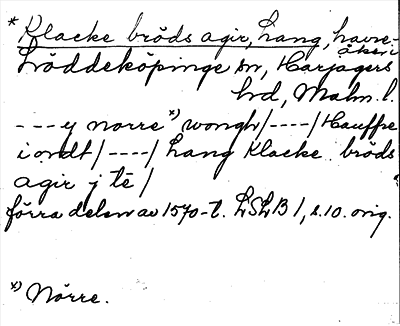 * Klacke bröds agir, Lang, havre-
åker i
Löddeköpinge sn, Harjagers
hd, Malm. l.
---y norre *) wongh/----/Hauffre
i ordt/----/Lang Klacke bröds
agir j tē/
förra delen av 1570-t. LSLB 1, s. 10. orig.
*) Nörre.